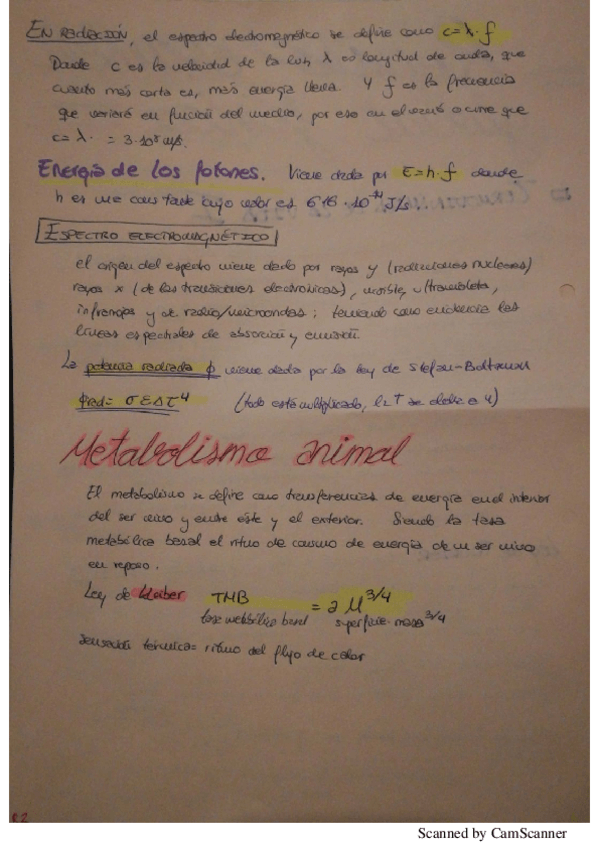 EN RADIACIÓN, el espectro electromagnético se define como c=λ·f
Donde c es la velocidad de la luz, λ es longitud de onda, que
cuanto más corta es, más energía lleva. Y f es la frecuencia
que variará en función del medio, por eso en el vacío ocurre que
c=λ· = 3·10⁸ m/s.
Energía de los fotones. Viene dada por E=h·f donde
h es una constante cuyo valor es 6'16·10⁻³⁴ J/s.
ESPECTRO ELECTROMAGNÉTICO
el origen del espectro viene dado por rayos γ (radiaciones nucleares)
rayos x (de las transiciones electrónicas), visible, ultravioleta,
infrarrojos y de radio/microondas; teniendo como evidencia las
líneas espectrales de absorción y emisión.
La potencia radiada ϕ viene dada por la ley de Stefan-Boltzman
ϕrad= σEAT⁴ (todo está multiplicado, la T se eleva a 4)
Metabolismo animal
El metabolismo se define como transferencias de energía en el interior
del ser vivo y entre éste y el exterior. Siendo la tasa
metabólica basal el ritmo de consumo de energía de un ser vivo
en reposo.
Ley de Kleiber TMB = a M^3/4
tasa metabólica basal superficie·masa^3/4
Sensación térmica= ritmo del flujo de calor
Scanned by CamScanner